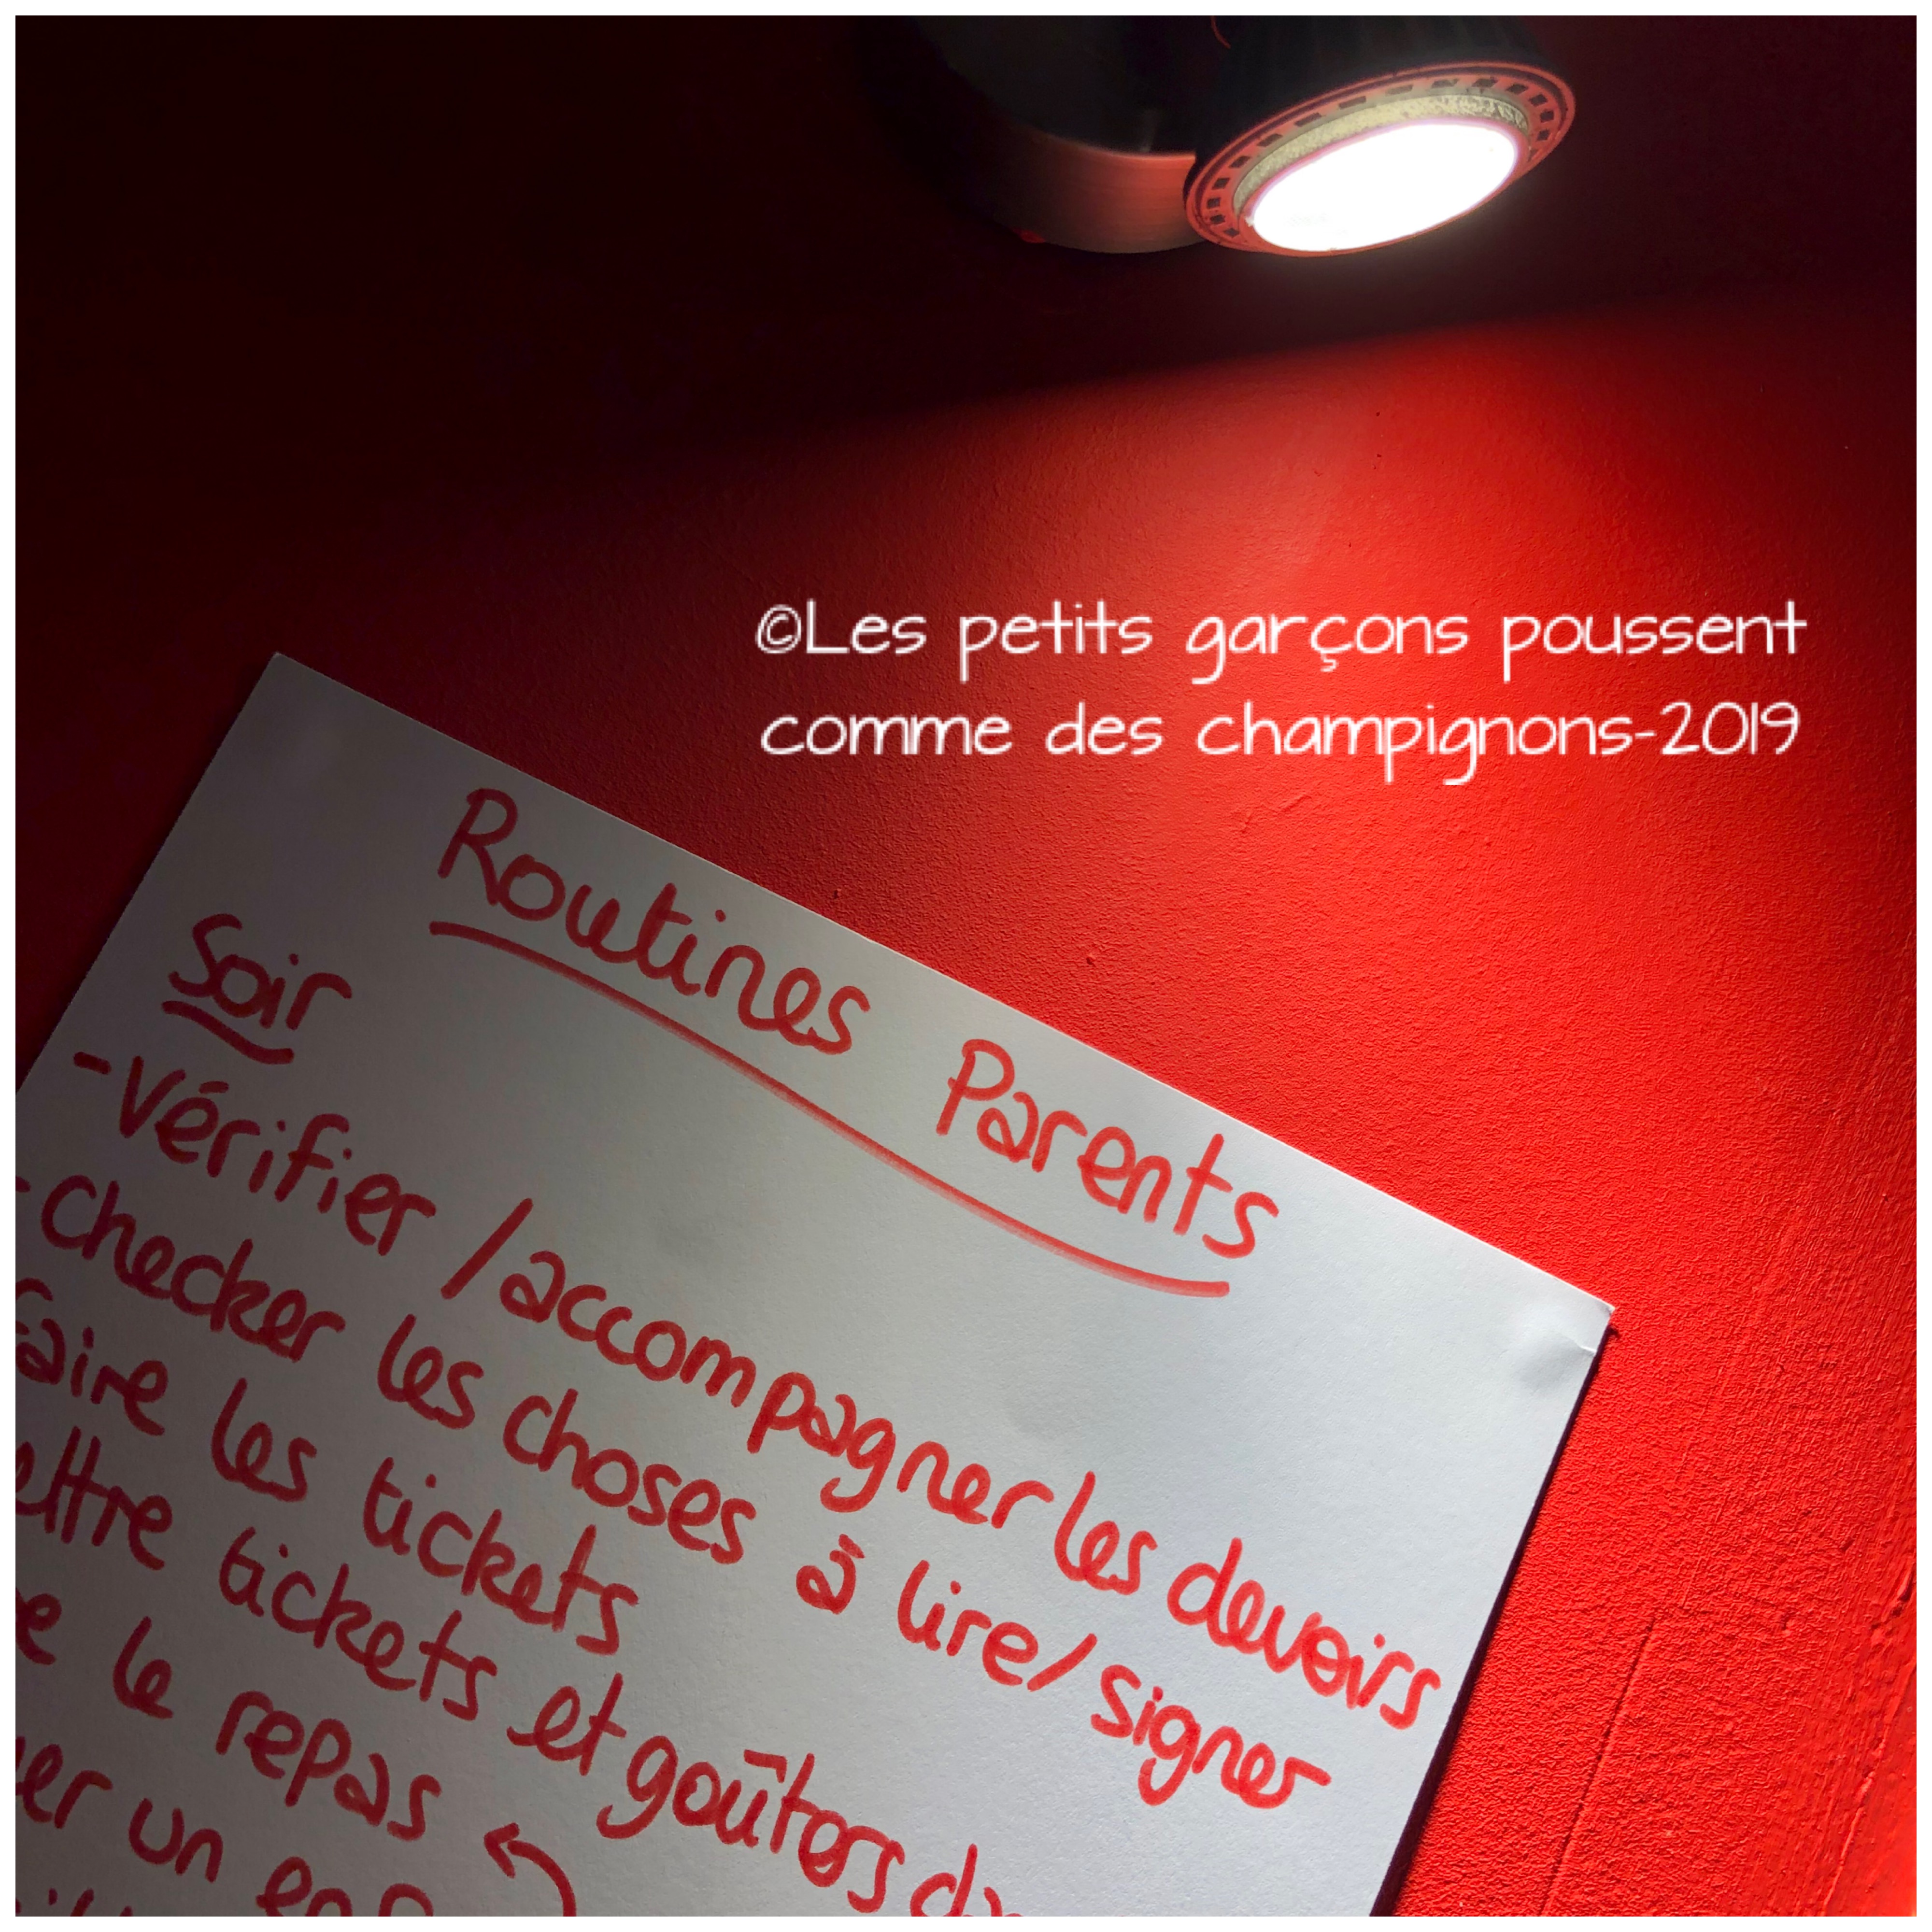 ©Les petits garçons poussent
comme des champignons-2019
Routines Parents
Soir
-Vérifier / accompagner les devoirs
-checker les choses à lire/signer
faire les tickets
tickets et goûters
le repas
un